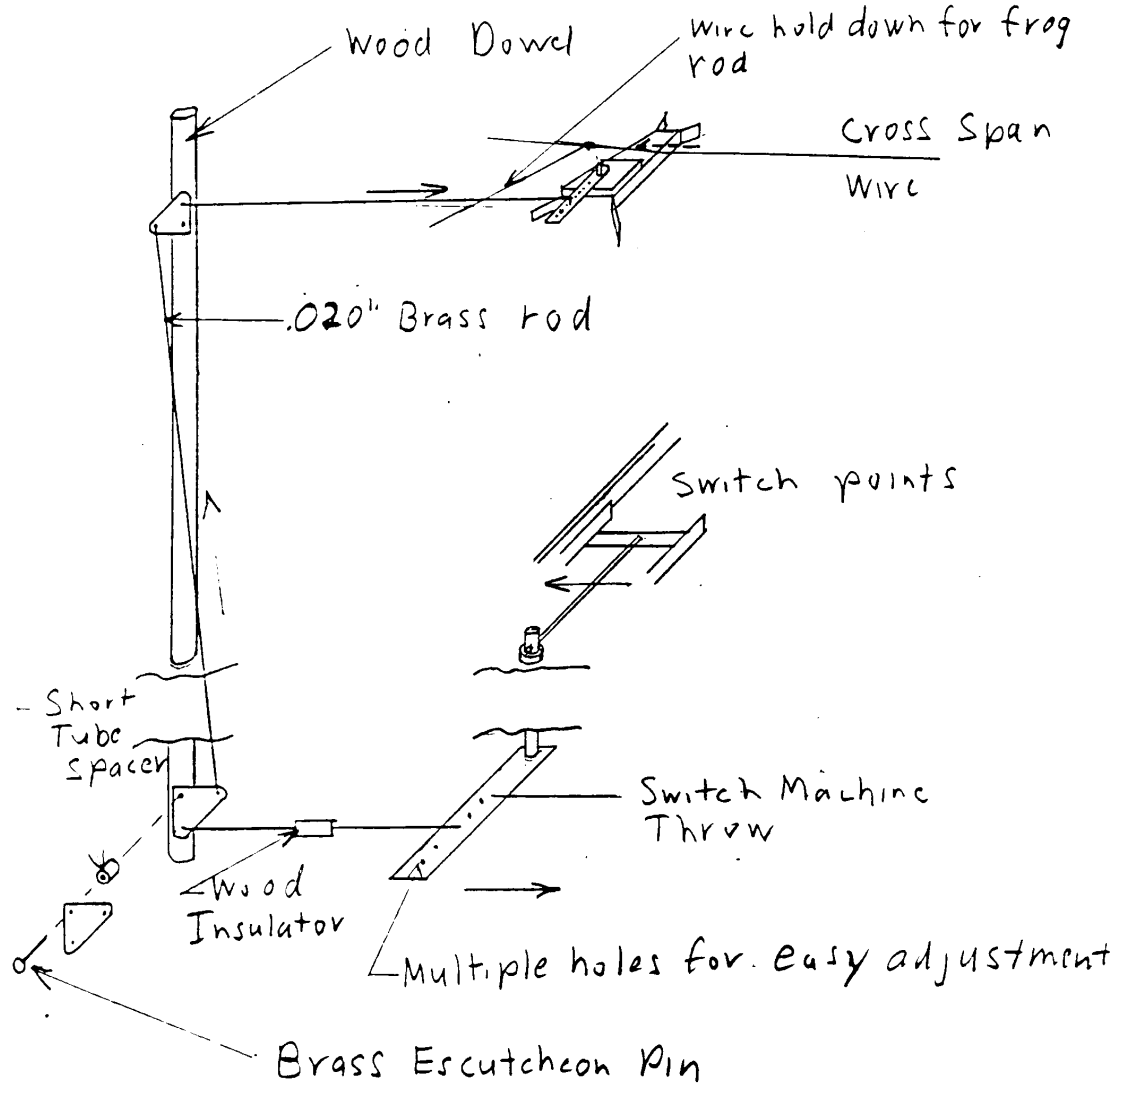 Wood Dowel
Wire hold down for frog
rod
Cross Span
Wire
.020" Brass rod
Switch points
- Short
Tube
Spacer
Switch Machine
Throw
Wood
Insulator
Multiple holes for easy adjustment
Brass Escutcheon Pin